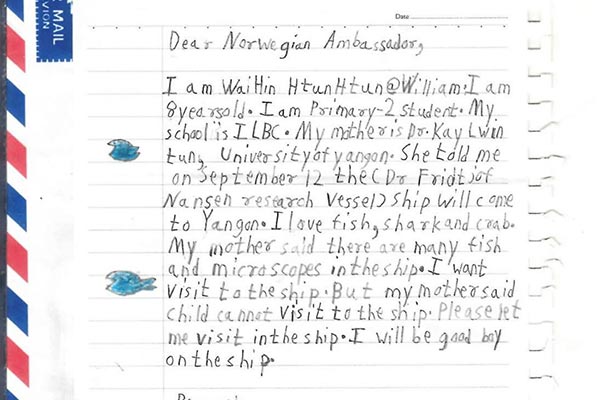 MAIL
AVION
Date
Dear Norwegian Ambassador,
I am WaiHin HtunHtun@William. I am
8 years old. I am Primary-2 student. My
school is ILBC. My mother is Dr. Kay Lwin
tun, University of yangon. She told me
on September 12 the (Dr Fridtjof
Nansen research Vessel) ship will come
to Yangon. I love fish, shark and crab.
My mother said there are many fish
and microscopes in the ship. I want
visit to the ship. But my mother said
child cannot visit to the ship. Please let
me visit in the ship. I will be good boy
on the ship.